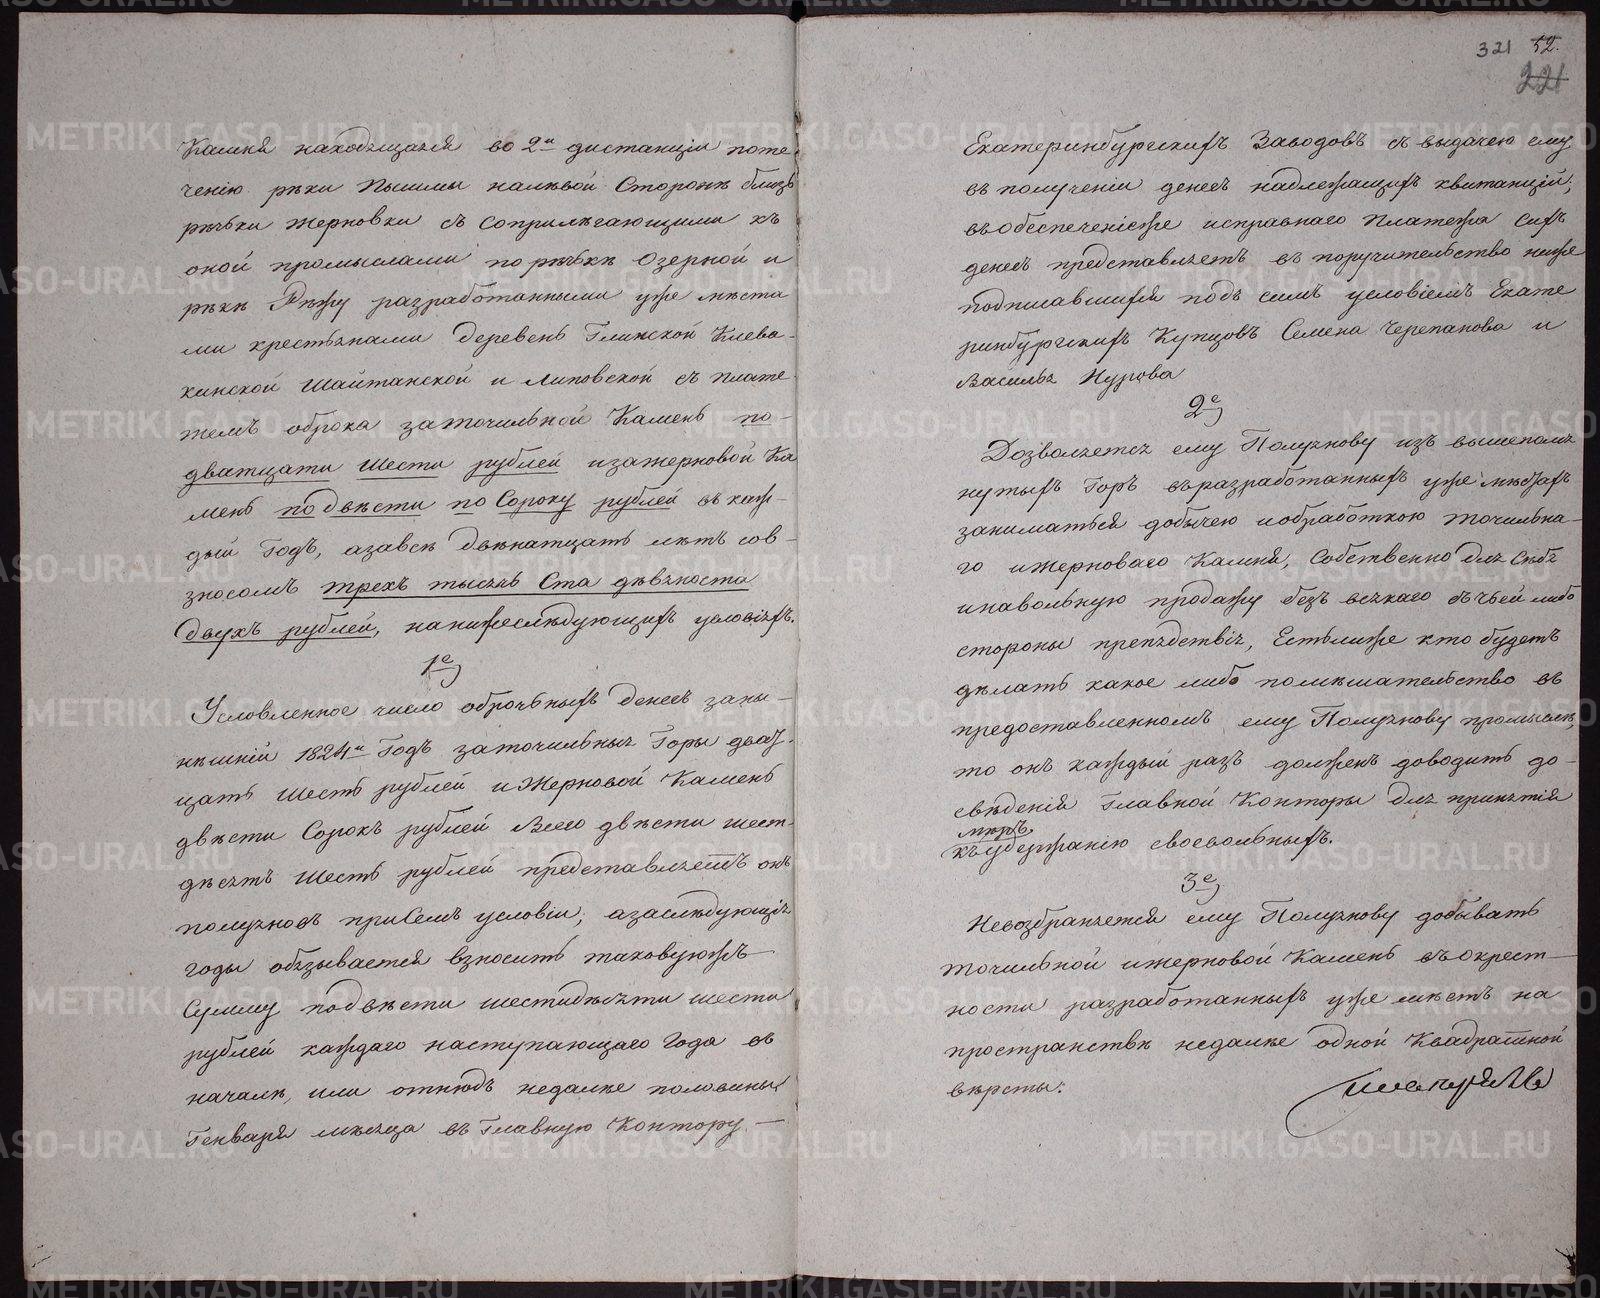 Камня находящагся во 2й дистанціи поте
ченію рѣки Пышмы налѣвой Сторонѣ близь
рѣчки Жерновки съ соприлѣгающими къ
оной промыслами порѣчкѣ Озерной и
рѣкѣ Рѣжу разработанными уже мѣста
ми крестьянами деревень Глинской Клева-
кинской Шайтанской и Липовской съ плате
жемъ оброка заточильной Камень по-
дватцати шести рублей изажерновой Ка
мень подвѣсти по Сороку рублей въ каж-
дый Годъ, азавсѣ двѣнатцать лѣтъ сов-
зносомъ трехъ тысячь Ста девяноста
двухъ рублей, нанижеслѣдующихъ условіяхъ.
1е
Условленное число оброчныхъ денегъ заны-
нѣшній 1824й Годъ заточильныя Горы двад-
цать шесть рублей и Жерновой Камень
двѣсти Сорокъ рублей Всего двѣсти шест-
десятъ шесть рублей представляетъ онъ
полузновъ приСемъ условіи, азаслѣдующія
годы обязывается взносить таковуюжъ
Сумму подвѣсти шестидесяти шести
рублей каждаго наступающаго Года въ
началѣ, или отнюдь недалѣе половины
Генваря мѣсяца въ Главную Контору
321 52.
221
Екатеринбургскихъ Заводовъ съ выдачею ему
въ полученіи денегъ надлежащихъ квитанцій;
въобеспеченіеже исправнаго Платежа сихъ
денегъ представляетъ въ поручительство ниже
подписавшихся подъ симъ условіемъ Екате
ринбургскихъ Купцовъ Семена Черепанова и
Василья Нурова
2е
Дозволяется ему Полузнову изъ вышепомя
нутыхъ Горъ въразработанныхъ уже мѣстахъ
заниматься добычею иобработкою точильна-
го ижерноваго Камня, Собственно для Себя
инавольную продажу безъ всякаго съчьей либо
стороны препядствія, Естьлиже кто будетъ
дѣлать какое либо помешательство въ
предоставленномъ ему Полузнову промыслѣ,
то онъ каждый разъ долженъ доводить до-
сведенія Главной Конторы для принятія
мѣръ
къудержанію своевольныхъ.
3е
Невозбраняется ему Полузнову добывать
точильной ижерновой Камень въокрест-
ности разработанныхъ уже мѣстъ на
пространствѣ недалѣе одной Квадратной
версты.